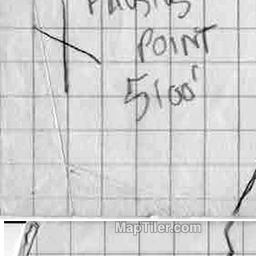 POINT
5100'
MapTiler.com